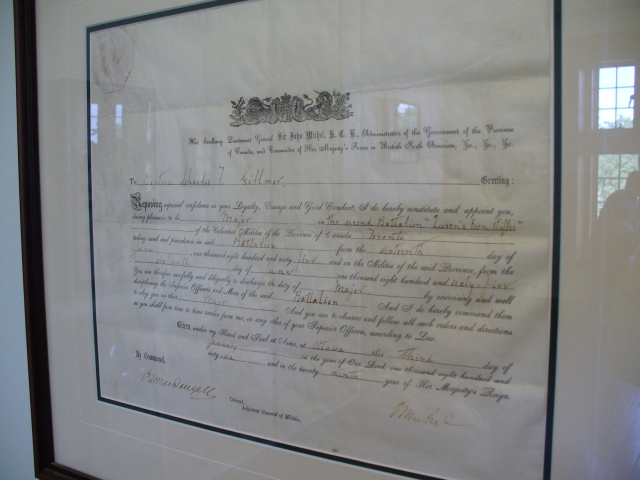 His Excellency Lieutenant General Sir John Michel, K. C. B., Administrator of the Government of the Province
of Canada, and Commander of Her Majesty's Forces in British North America, &c., &c., &c.
To Charles T. Gillmor, Greeting:
Reposing especial confidence in your Loyalty, Courage and Good Conduct, I do hereby constitute and appoint you,
during pleasure, to be Major in The second Battalion "Queen's Own Rifles"
of the Volunteer Militia of the Province of Canada Toronto
taking rank and precedence in said Battalion from the sixteenth day of
June one thousand eight hundred and sixty five and in the Militia of the said Province, from the
sixteenth day of June one thousand eight hundred and sixty five
You are therefore carefully and diligently to discharge the duty of Major by exercising and well
disciplining the Inferior Officers and Men of the said Battalion And I do hereby command them
to obey you as their Major And you are to observe and follow all such orders and directions
as you shall from time to time receive from me, or any other of your Superior Officers, according to Law.
Given under my Hand and Seal at Arms, at Ottawa this third day of
January in the year of Our Lord, one thousand eight hundred and
sixty-six and in the twenty ninth year of Her Majesty's Reign.
By Command,
P. L. MacDougall
Colonel,
Adjutant General of Militia.